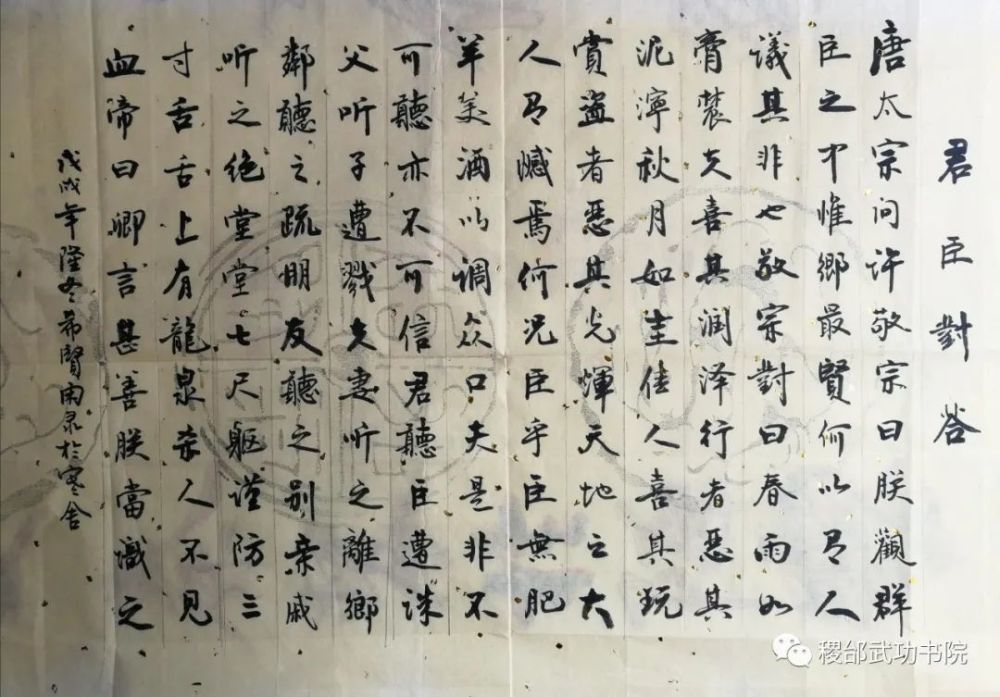 君臣對答
唐太宗问许敬宗曰朕觀群
臣之中惟鄉最賢何以有人
議其非也敬宗對曰春雨如
膏農夫喜其润泽行者惡其
泥濘秋月如圭佳人喜其玩
赏盗者恶其光輝天地之大
人有憾焉何况臣乎臣無肥
羊美酒以调众口夫是非不
可聽亦不可信君聽臣遭诛
父听子遭戮夫妻听之離鄉
鄰聽之疏朋友聽之别亲戚
听之绝堂堂七尺躯谨防三
寸舌舌上有龍泉杀人不見
血帝曰卿言甚善朕當識之
戊戌年隆冬希賢南录於寒舍
稷邰武功书院